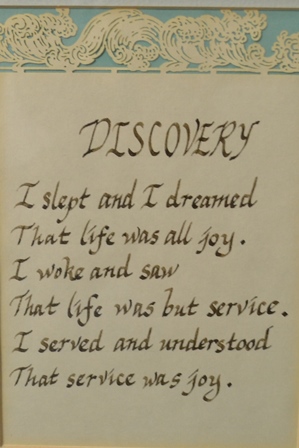 DISCOVERY
I slept and I dreamed
That life was all joy.
I woke and saw
That life was but service.
I served and understood
That service was joy.